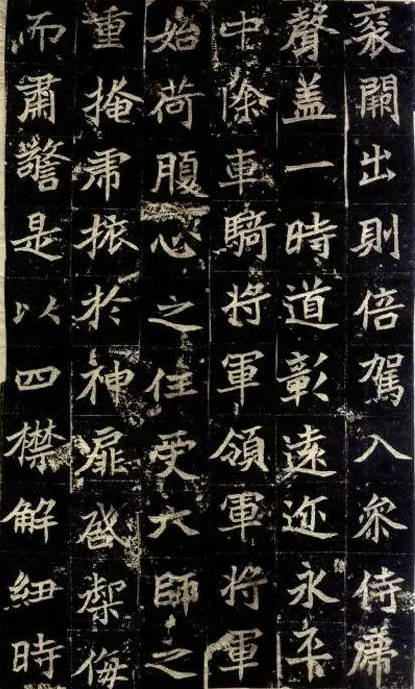 袞闕出則倍駕入參侍席
聲盖一時道彰遠迩永平
中除車騎将軍領軍将軍
始荷腹心之任受六師之
重掩虎旅於神扉啓禦侮
而肅警是以四襟解紐時